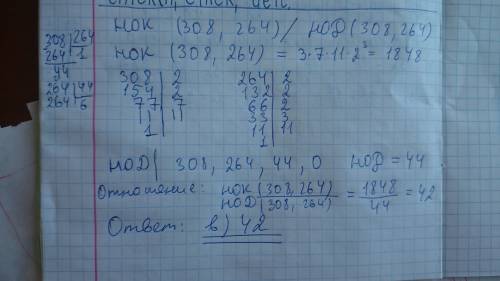 НОК (308, 264) / НОД (308, 264)
НОК (308, 264) = 3·7·11·2³ = 1848
308 | 264
264 | 1
44
264 | 44
264 | 6
308 | 2
154 | 2
77 | 7
11 | 11
1
264 | 2
132 | 2
66 | 2
33 | 3
11 | 11
1
НОД | 308, 264, 44, 0 НОД = 44
Отношение: НОК (308, 264) / НОД (308, 264) = 1848 / 44 = 42
Ответ: в) 42